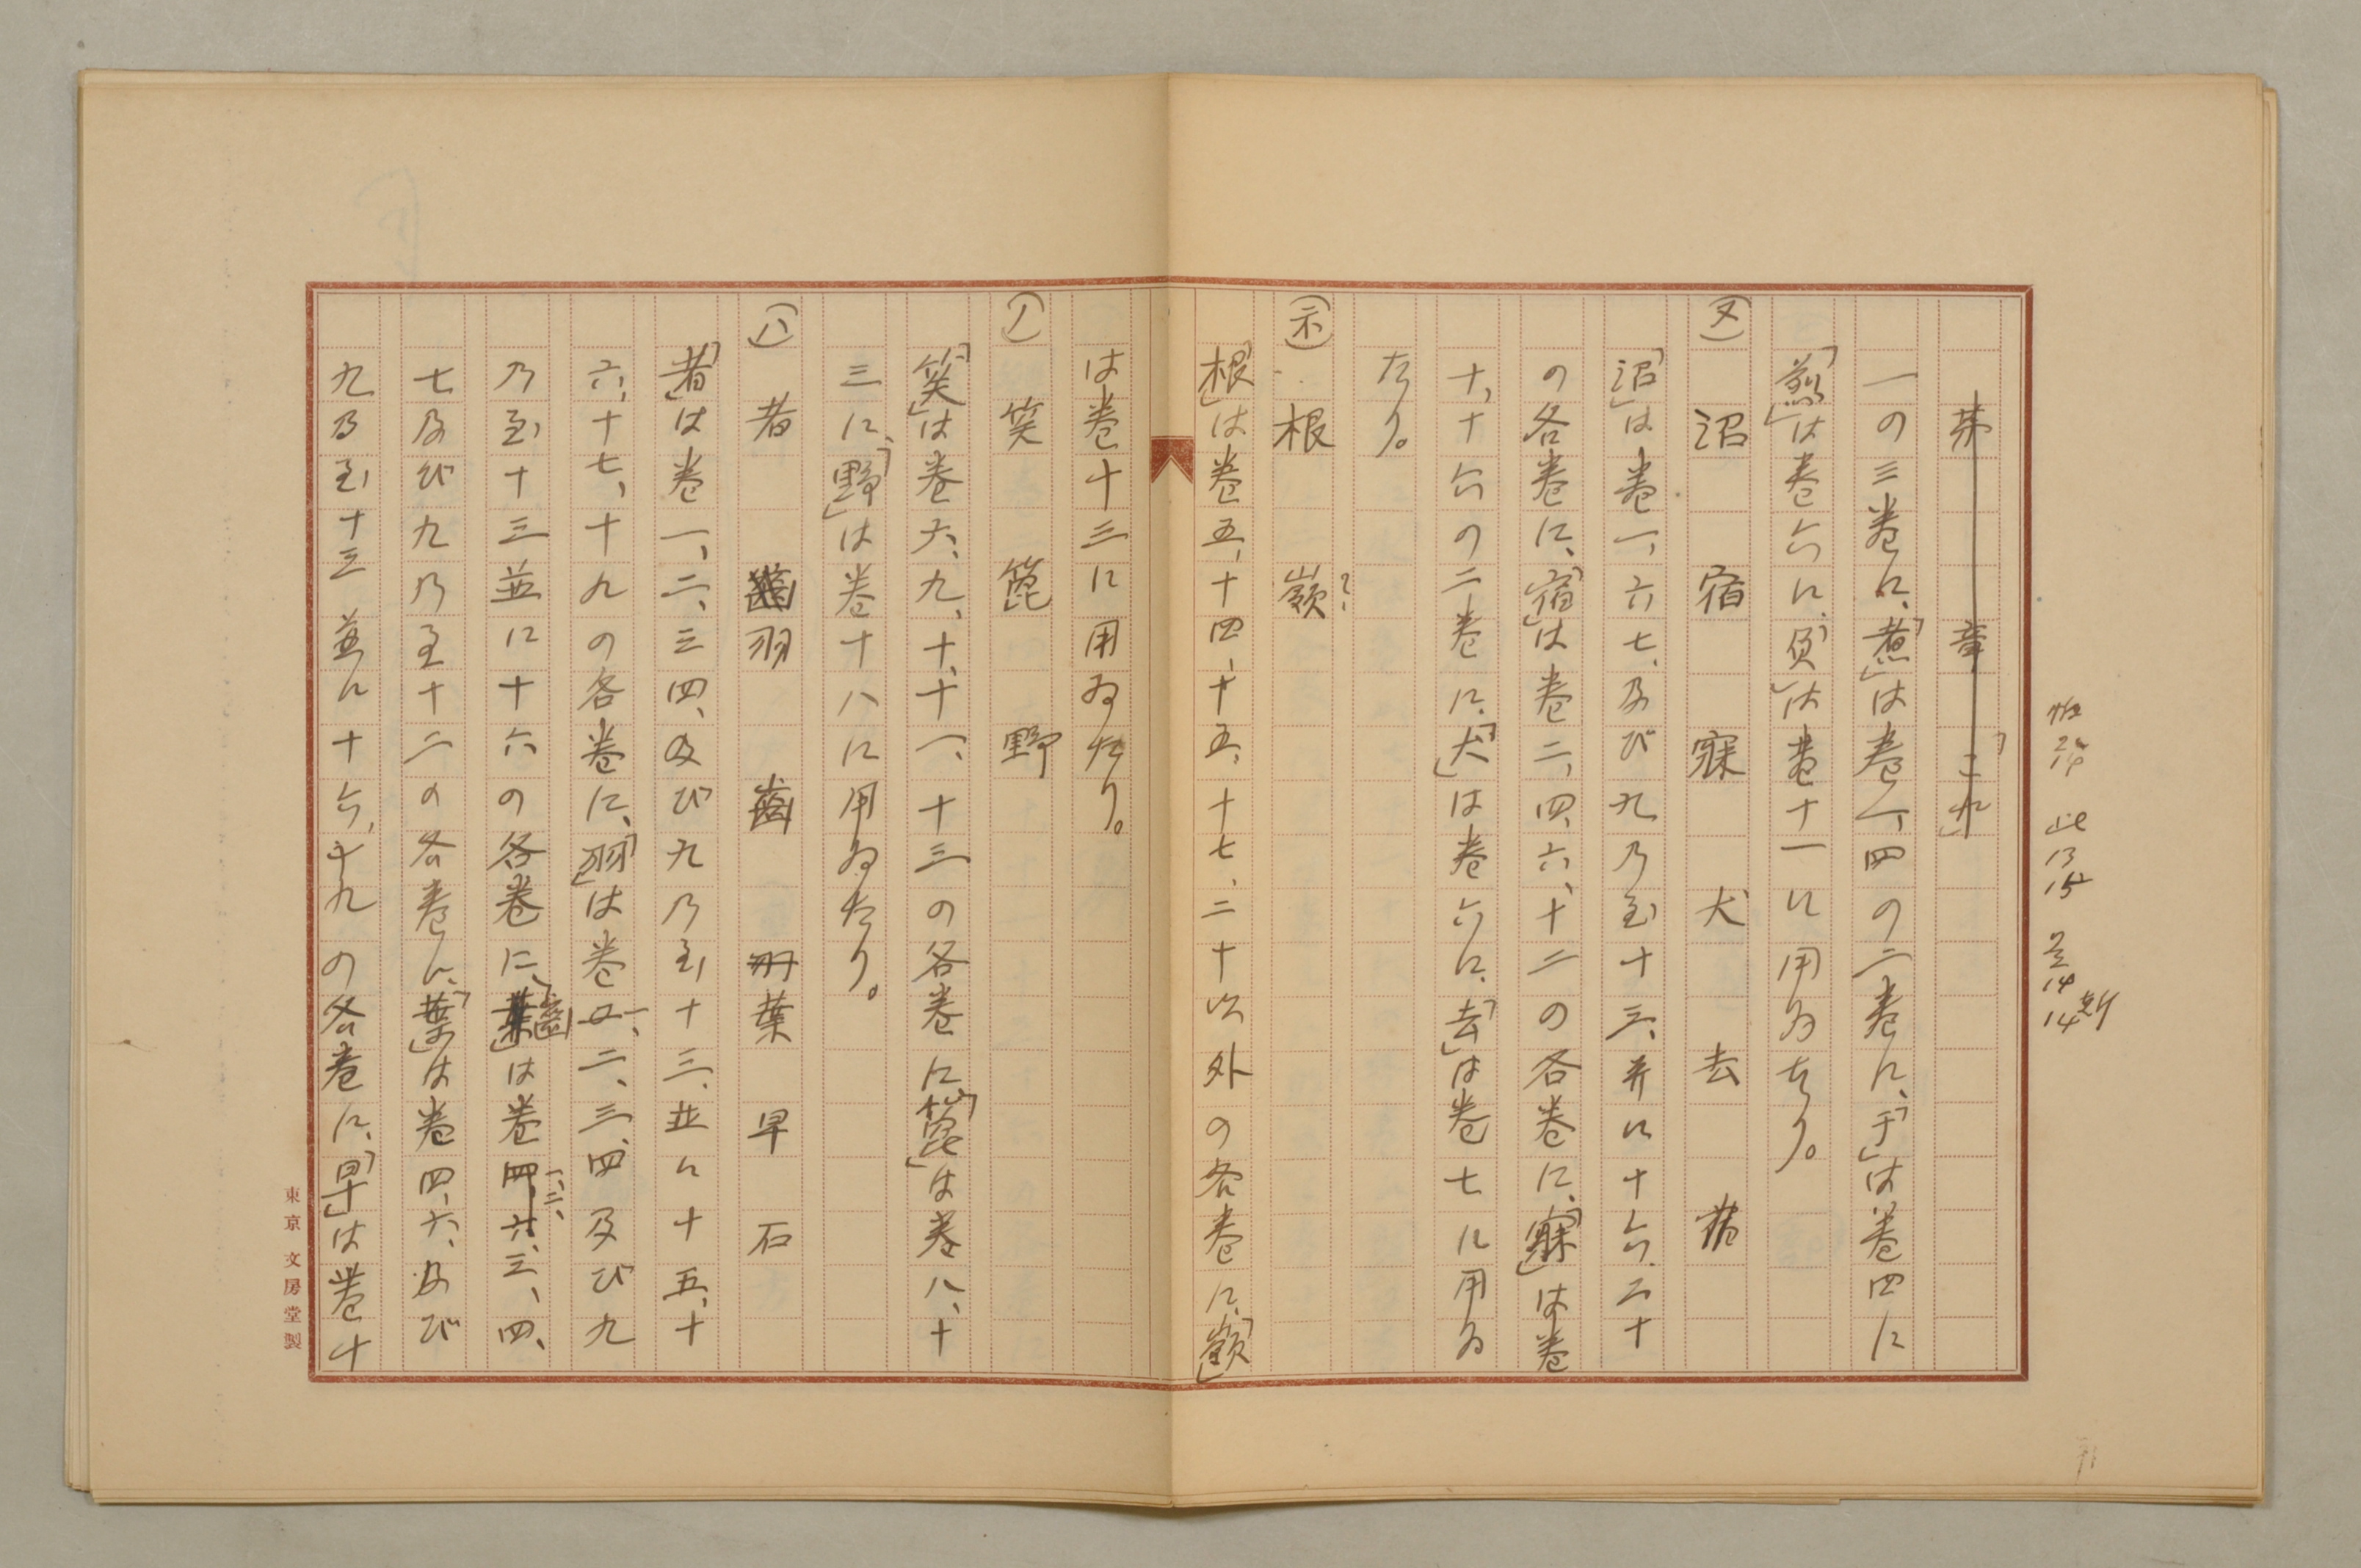 第 章 「これ」
一の三巻に、「煮」は巻一、四の二巻に、「于」は巻四に
「煎」は巻六に、「負」は巻十一に用ゐたり。
(ヌ) 沼 宿 寐 犬 去
「沼」は巻一、六七、及び九乃至十三、并に十六、二十
の各巻に、「宿」は巻二、四、六、十二の各巻に、「寐」は巻
十、十六の二巻に、「犬」は巻六に、「去」は巻七に用ゐ
たり。
(ネ) 根 嶺
「根」は巻五、十四、十五、十七、二十以外の各巻に、「嶺」
は巻十三に用ゐたり。
(ノ) 笑 箆 野
「笑」は巻六、九、十、十一、十三の各巻に、「箆」は巻八、十
三に、「野」は巻十八に用ゐたり。
(ハ) 者 羽 歯 葉 早 石
「者」は巻一、二、三四、及び九乃至十三、並に十五、十
六、十七、十九の各巻に、「羽」は巻一、二、三、四及び九
乃至十三並に十六の各巻に、「歯」は巻一、二、三、四、
七及び九乃至十二の各巻に、「葉」は巻四、六、及び
九乃至十三並に十六、十九の各巻に、「早」は巻十
此
13
15
14
14
東京 文房堂製